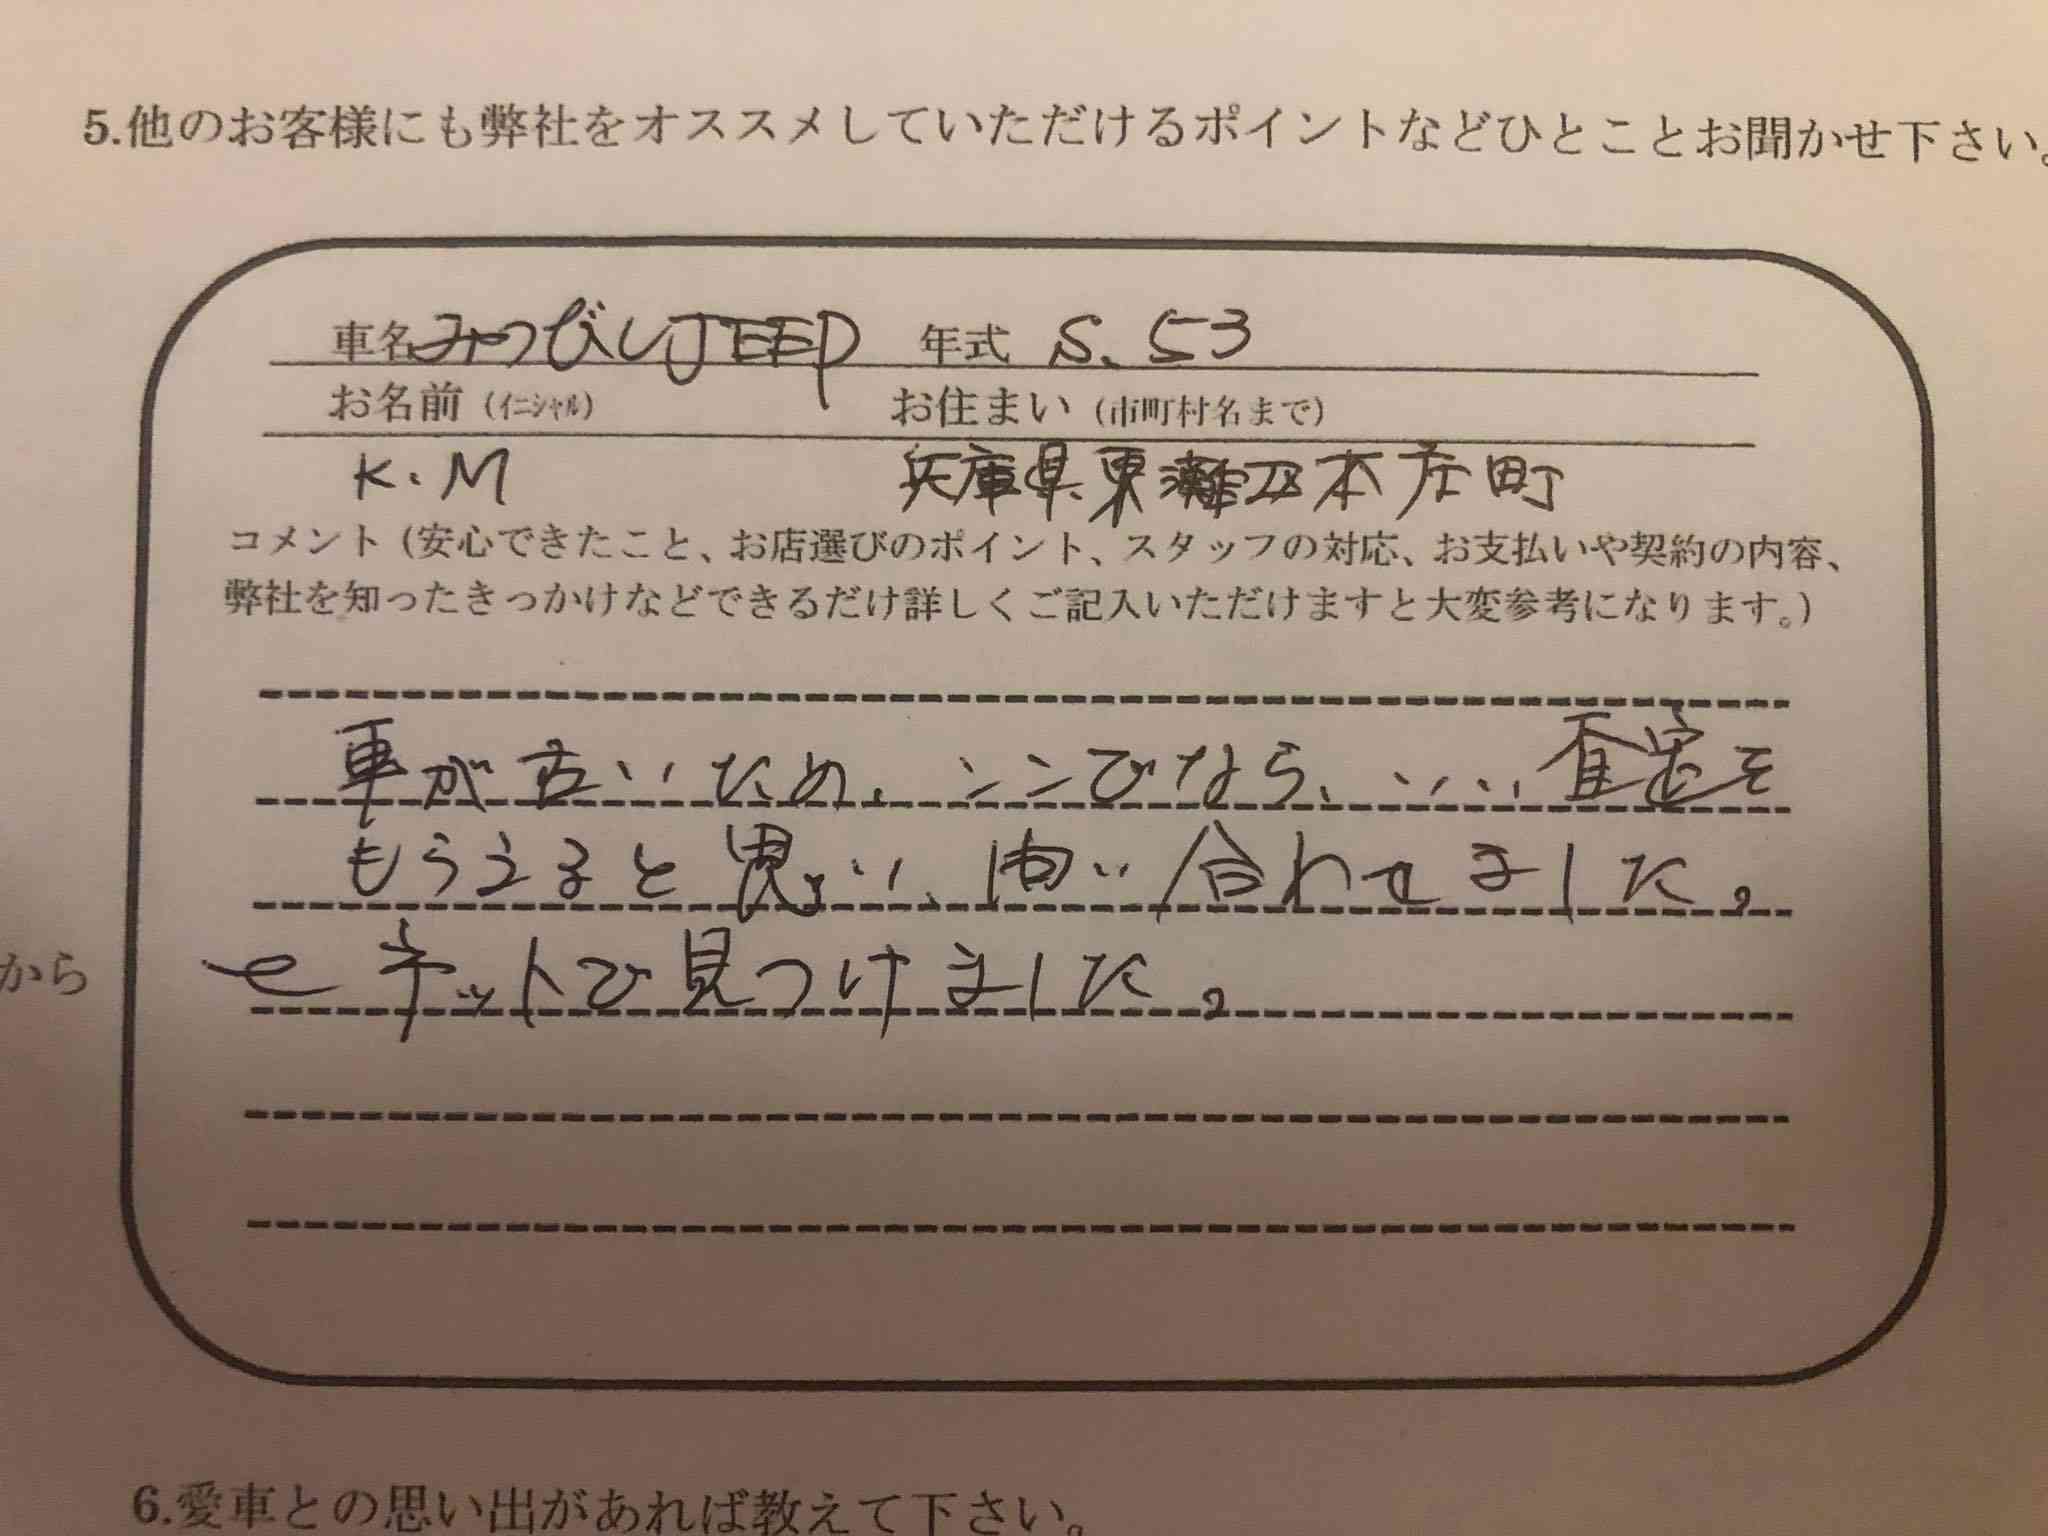 5.他のお客様にも弊社をオススメしていただけるポイントなどひとことお聞かせ下さい。
車名 みつびしJEEP 年式 S.53
お名前(イニシャル) お住まい(市町村名まで)
K.M 兵庫県東灘区本庄町
コメント(安心できたこと、お店選びのポイント、スタッフの対応、お支払いや契約の内容、
弊社を知ったきっかけなどできるだけ詳しくご記入いただけますと大変参考になります。)
車が古いため、ここでなら、いい査定を
もらえると思い、問い合わせました。
から
ネットで見つけました。
6.愛車との思い出があれば教えて下さい。